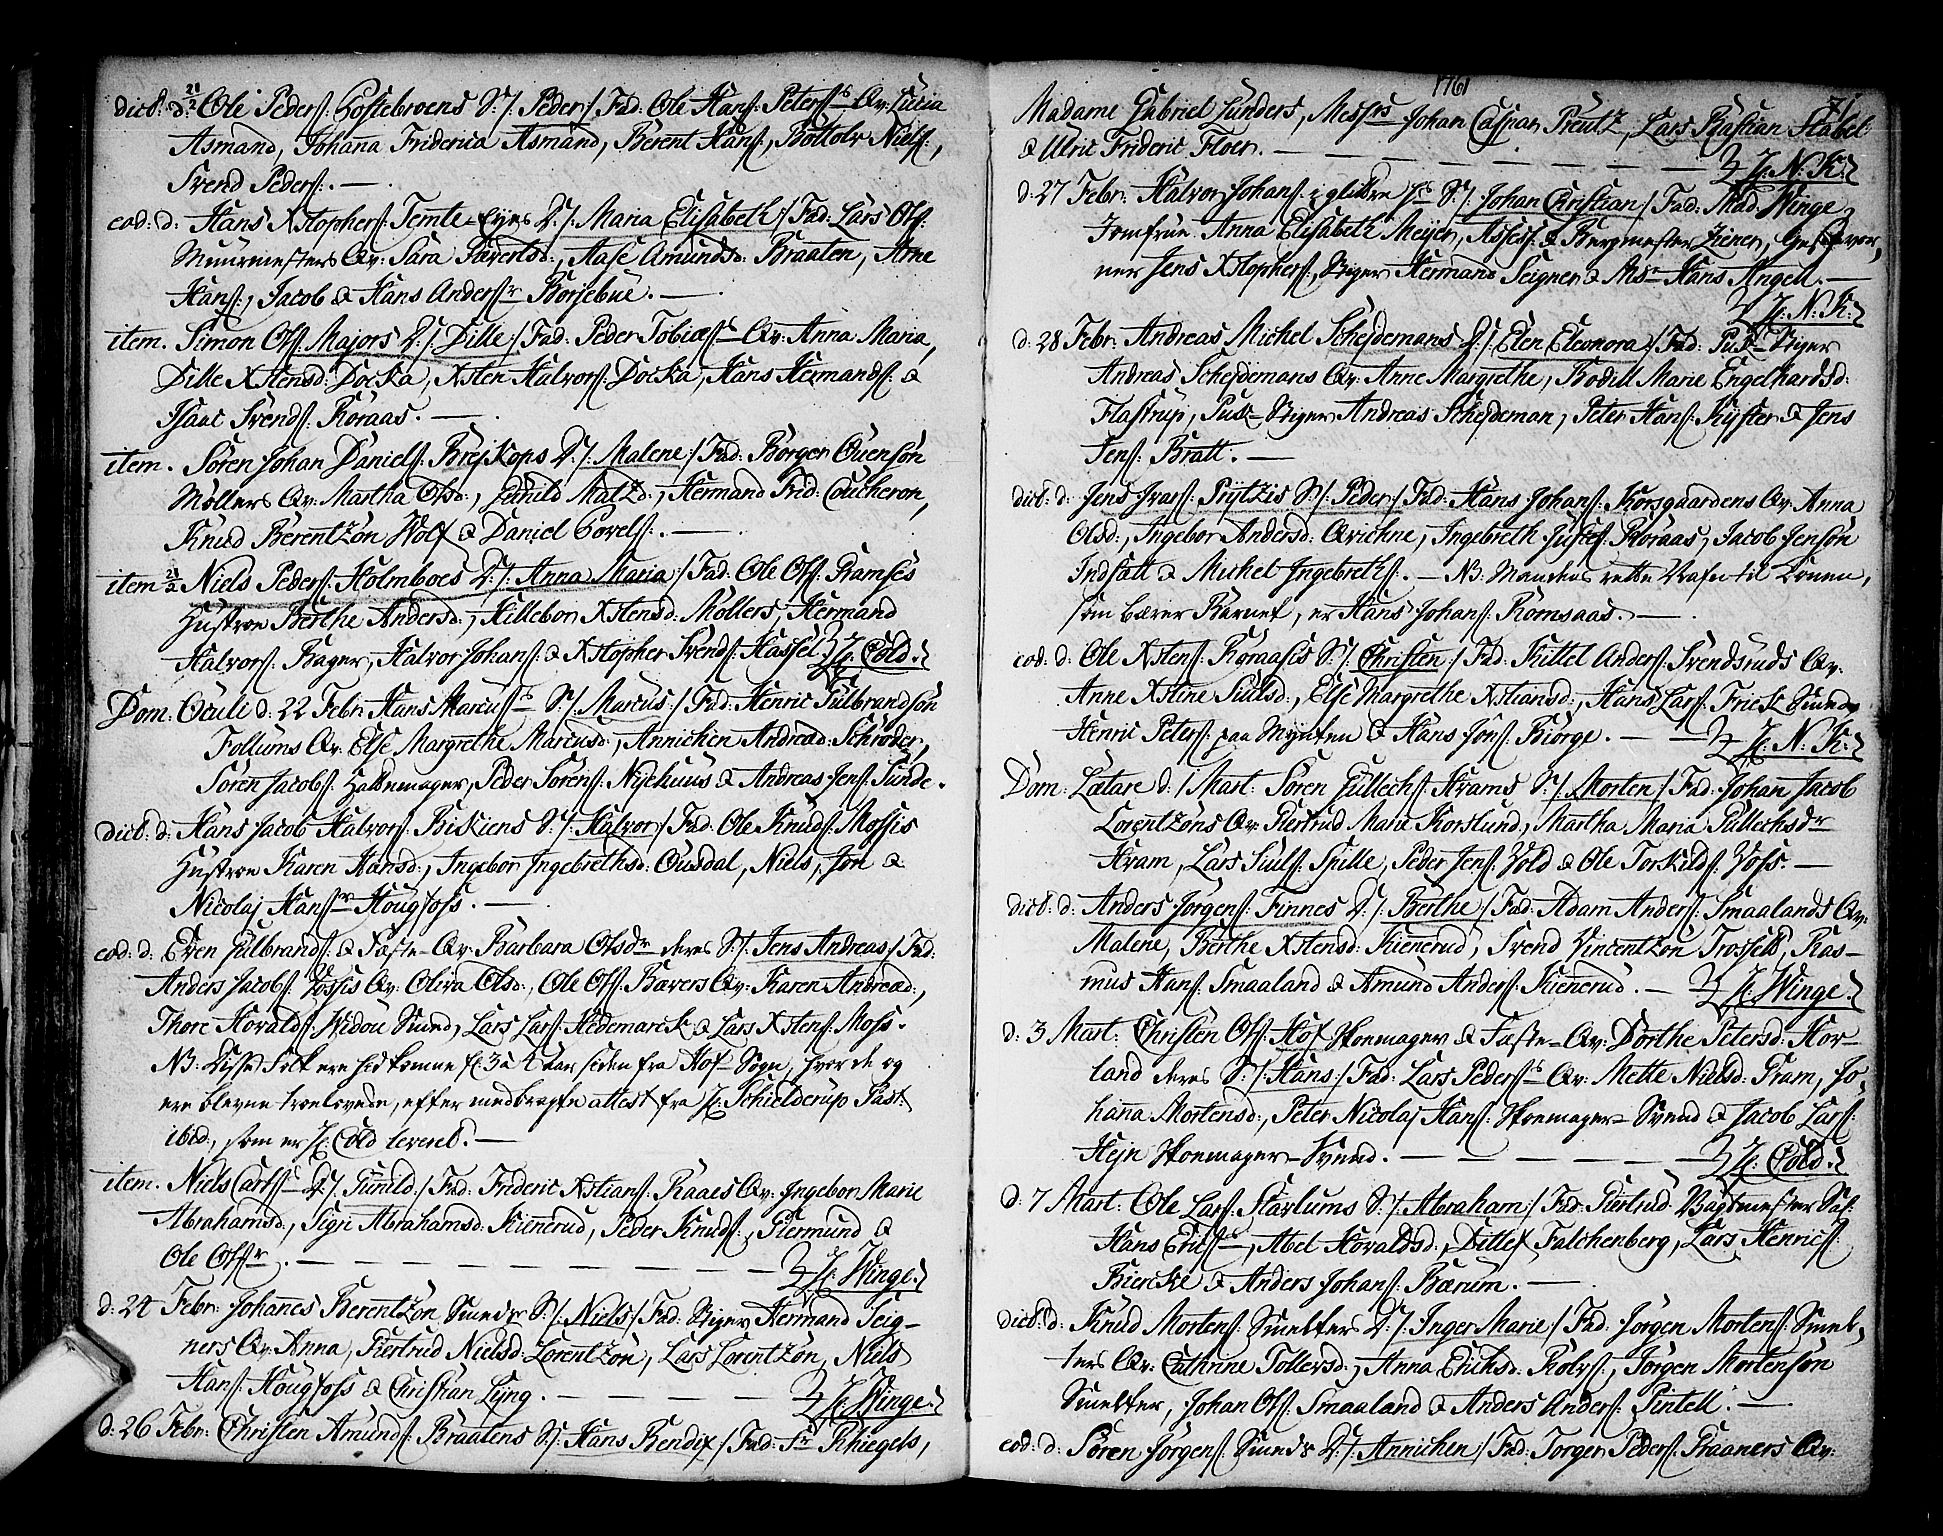 dict. d. 21/2 Ole Peders: Gostebroens S./. Peder/ Fad: Ole Hans: Peters:s Qv: Lucia
Asmand, Johana Friderica Asmand, Berent Hans:, Bottolv Niels:,
Svend Peders:. —
eod: d: Hans Xstophers: Temte-Eyes D./. Maria Elisabeth/ Fad: Lars Ols:
Muurmesters Qv: Sara Siverttsd:, Aase Amundsd: Braaten, Arne
Hans:, Jacob & Hans Anders:r Borsebue. —
item. Simon Ols: Majors D./. Dille/ Fad: Peder Tobiæs:s Qv: Anna Maria,
Dille Xstensd: Docka, Xsten Halvors: Docka, Hans Hermands: &
Isaac Svends: Roraas. —
item. Sören Johan Daniels: Brejkops D./. Malene/ Fad: Borger Ouensön
Möllers Qv: Martha Olsd:, Gunild Matzd:, Hermand Frid: Coucheron,
Knud Berentzön Wolf & Daniel Povels:. —
item 21/2 Niels Peders: Holmboes D./. Anna Maria/ Fad: Ole Ols: Ramses
Hustroe Berthe Andersd:, Hillebor Xstensd: Möllers, Hermand
Halvors: Bager, Halvor Johans: & Xstopher Svends: Hassel H: Cold.
Dom: Oculi d: 22 Febr: Hans Marcus:s S./. Marcus/ Fad: Henric Gulbrandsön
Follums Qv: Else Margrethe Marcusd:, Annichen Andread: Schröder,
Sören Jacobs: Hattemager, Peder Sörens: Nyehuus & Andreas Jens: Lunde.
dict: d: Hans Jacob Halvors: Biskiens S./. Halvor/ Fad: Ole Knuds: Mossis
Hustroe Karen Hansd:, Ingebor Ingebrethsd: Ousdal, Niels, Jon &
Nicolaj Hans:r Hougfoss. —
eod: d: Even Gulbrands: & Fæste-Qv: Barbara Olsdr deres S./. Jens Andreas/ Fad:
Anders Jacobs: Vossis Qv: Oliva Olsd:, Ole Ols: Bævers Qv: Karen Andread:,
Thore Hovalds: Widou Smed, Lars Lars: Hedemarck & Lars Xstens: Moss.
NB: Disse Folk ere hidkomne for 3 a 4 Aar siden fra Hof-Sogn, hvor de og
ere blevne troelovede, efter medbragte attest fra H: Schielderup Past:
ibid:, som er H: Cold leveret. —
item. Niels Carls:s D./. Gunild/ Fad: Frideric Xstians: Raaes Qv: Ingebor Marie
Abrahamsd:, Sigri Abrahamsd: Kienerud, Peder Knuds:, Giermund &
Ole Ols:r. — H: Winge.
d: 24 Febr: Johanes Berentzön Smeds S./. Niels/ Fad: Stiger Hermand Seig-
ners Qv: Anna, Giertrud Nielsd: Lorentzön, Lars Lorentzön, Niels
Hans: Hougfoss & Christian Lyng. — H: Winge.
d: 26 Febr: Christen Amunds: Braatens S/. Hans Bendix/ Fad: Fr: Rhiegels,
1761
71
Madame Gabriel Lunders, Messrs Johan Caspar Preutz, Lars Bastian Stabel
& Ulric Frideric Floer. — H: N. K:
d: 27 Febr: Halvor Johans: i glittre H:s S./. Johan Christian/ Fad: Mad: Winge,
Jomfrue Anna Elisabeth Meyer, Assess: & Bergmester Ziener, Geschwor,
ner Jens Xstophers:, Stiger Hermand Seigner & Msr Hans Angell. —
H: N: K:
d: 28 Febr: Andreas Michel Schejdemans D./. Elen Eleonora/ Fad: Puk-Stiger
Andreas Schejdemans Qv: Anne Margrethe, Bodill Marie Engelhardsd:
Flastrup, Puk-Stiger Andreas Schejdeman, Peter Hans: Kyster & Jens
Jens: Bratt. —
dict: d: Jens Ivars: Prytzis S./. Peder/ Fad: Hans Johans: Korsgaardens Qv: Anna
Olsd:, Ingebor Andersd: Qvichne, Ingebreth Justes: Roraas, Jacob Jensön
Indsatt & Michel Ingebreths:. — NB. Mandens rette Nafn til Konen,
som bærer Barnet, er Hans Johans: Romsaas. —
eod: d: Ole Xstens: Rgraasis S./. Christen/ Fad: Kittel Anders: Svendsruds Qv:
Anne Xstine Siulsd:, Else Margrethe Xstiansd:, Hans Lars: Frick Smed,
Henric Peters: paa Mynten & Hans Jons: Biörge. — H: N: K:
Dom: Lætare d: 1 Mart: Sören Gullechs: Krams S./. Morten/ Fad: Johan Jacob
Lorentzöns Qv: Giertrud Marie Korslund, Martha Maria Gullechsdr
Kram, Lars Siuls: Spille, Peder Jens: Vold & Ole Torkilds: Voss. —
dict: d: Anders Jörgens: Finnes D./. Berthe/ Fad: Adam Anders: Smaalands Qv:
Malene, Berthe Xstensd: Kienerud, Svend Vincentzön Trossett, Ras-
mus Hans: Smaaland & Amund Anders: Kienerud. — H: Winge.
d: 3 Mart: Christen Ols: Hof Skoemager & Fæste-Qv: Dorthe Petersd: Hor-
land deres S./. Hans/ Fad: Lars Peders:s Qv: Mette Nielsd: Fram, Jo,
hanna Mortensd:, Peter Nicolaj Hans: Skoemager-Svend & Jacob Lars:
Hejn Skoemager-Svend. — H: Cold.
d: 7 Mart: Ole Lars: Starlums S./. Abraham/ Fad: Giertrud Bagtmester Sal:
Hans Erics:s, Abel Hovaldsd:, Ditlef Falchenberg, Lars Henrics:
Biercke & Anders Johans: Bærum. —
dict: d: Knud Mortens: Smelters D./. Inger Marie/ Fad: Jörgen Mortens: Smel,
ters Qv: Cathrine Tollersd:, Anna Erichsd: Rolvs:, Jörgen Mortensön
Smelter, Johan Ols: Smaaland & Anders Anders: Pintell. —
eod: d: Sören Jörgens: Smeds D./. Annichen/ Fad: Torger Peders: Fraaners Qv: